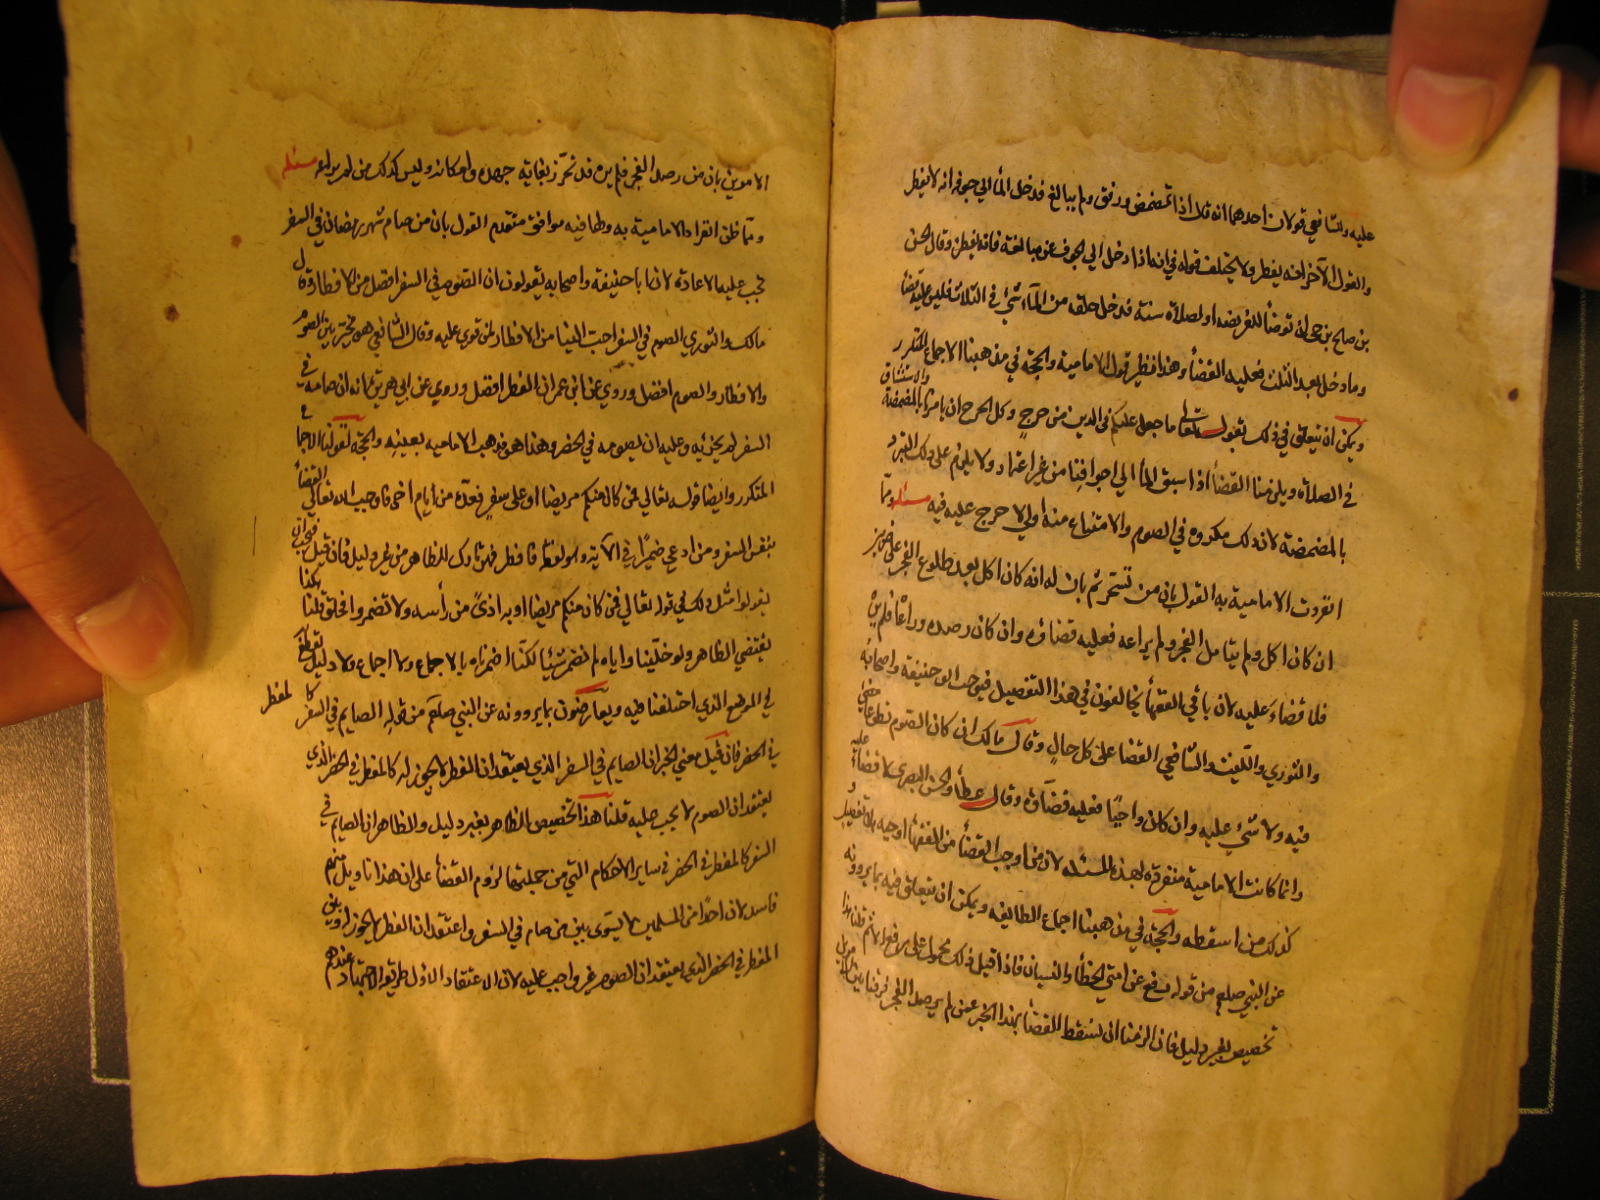 عليه وللشافعي قولان احدهما انه قال اذا تمضمض ورفق ولم يبالغ فدخل الماء الي جوفه انه لا يفطر
والقول الآخر انه يفطر ولا يختلف قوله في انه اذا دخل الي الجوف عن مبالغة فانه يفطر وقال الحسن
بن صالح بن حي ان توضأ للفريضه او لصلاة سنة فدخل حلقه من المآء شئ في الثلاث فليس عليه قضا
وما دخل بعد الثلث فعليه القضأ وهذا نظير قول الامامية والحجة في مذهبنا الاجماع المتكرر
ويمكن ان يتعلق في ذلك بقوله تعالى ما جعل عليكم في الدين من حرج وكل الحرج ان يامرنا بالمضمضة والاستنشاق
في الصلاة ويلزمنا القضأ اذا سبق المأ الي اجوافنا من غير اعتماد ولا يلزم على ذلك التبرد
بالمضمضة لان ذلك مكروه في الصوم والامتناع منه اولي لا حرج عليه فيه مسئله ومما
انفردت الامامية به القول بان من تسحر ثم بان له انه كان اكل بعد طلوع الفجر على ضربين
ان كان اكل ولم يتامل الفجر ولم يراعه فعليه قضاؤه وان كان رصده وراعاه فلم يره
فلا قضاء عليه لان باقي الفقهأ يخالفون في هذا التفصيل فيوجب ابو حنيفة واصحابه
والثوري والليث والشافعي القضا على كل حال وقال مالك ان كان الصوم تطوعا مضى
فيه ولا شئ عليه وان كان واجبًا فعليه قضاؤه وقال عطأ والحسن البصري لا قضأ عليه
وانما كانت الامامية منفردة بهذه المسئله لان من اوجب القضأ من الفقهأ اوجبه بلا تفصيل و
كذلك من اسقطه والحجة في مذهبنا اجماع الطايفه ويمكن ان يتعلق فيه بما يروونه
عن النبي صلعم من قوله رفع عن امتي الخطأ والنسيان فاذا قيل ذلك محمول على رفع الاثم قلنا هذا
تخصيص بغير دليل فان الزمنا ان نسقط القضأ بهذا الخبر عمن لم يرصد الفجر فرقنا بين
الامرين بان من رصد الفجر فلم يره قد تحرز بغاية جهده وامكانه وليس كذلك من لم يراعه مسئله
ومما ظن انفراد الامامية به ولها فيه موافق متقدم القول بان من صام شهر رمضان في السفر
يجب عليه الاعادة لان ابا حنيفة واصحابه يقولون ان الصوم في السفر افضل من الافطار وقال
مالك والثوري الصوم في السفر احب الينا من الافطار لمن قوي عليه وقال الشافعي هو مخير بين الصوم
والافطار والصوم افضل وروي عن ابن عمر ان الفطر افضل وروي عن ابي هريرة انه ان صامه في
السفر لم يجزيه وعليه ان يصومه في الحضر وهذا هو مذهب الاماميه بعينه والحجة لقولنا الاجماع
المتكرر وايضا قوله تعالي فمن كان منكم مريضا او على سفر فعدة من ايام اخر فاوجب الله تعالي القضأ
بنفس السفر ومن ادعي ضميرًا في الآية وهو لفظة فافطر فهو تارك للظاهر من غير دليل فان قيل فيجب ان
يقولوا مثل ذلك في قوله تعالي فمن كان منكم مريضا او به اذىً من رأسه ولا تضمروا فحلق قلنا هكذا
يقتضي الظاهر ولو خلّينا واياه لم نضمر شيئا لكنا اضمرناه بالاجماع ولا اجماع ولا دليل يقطع
في الموضع الذي اختلفنا فيه ويعارضون بما يروونه عن النبي صلعم من قوله الصايم في السفر كالمفطر
في الحضر فان قيل معني الخبر ان الصايم في السفر الذي يعتقد ان الفطر لا يجوز له كالمفطر في الحضر الذي
يعتقد ان الصوم لا يجب عليه قلنا هذا تخصيص للظاهر بغير دليل والظاهر ان الصايم في
السفر كالمفطر في الحضر في ساير الاحكام التي من جملتها لزوم القضأ على ان هذا تاويل منهم
فاسد لان احدًا من المسلمين لا يسوى بين من صام في السفر واعتقد ان الفطر لا يجوز له وبين
المفطر في الحضر الذي يعتقد ان الصوم غير واجب عليه لان الاعتقاد الاول طريقه الاجتهاد عندهم